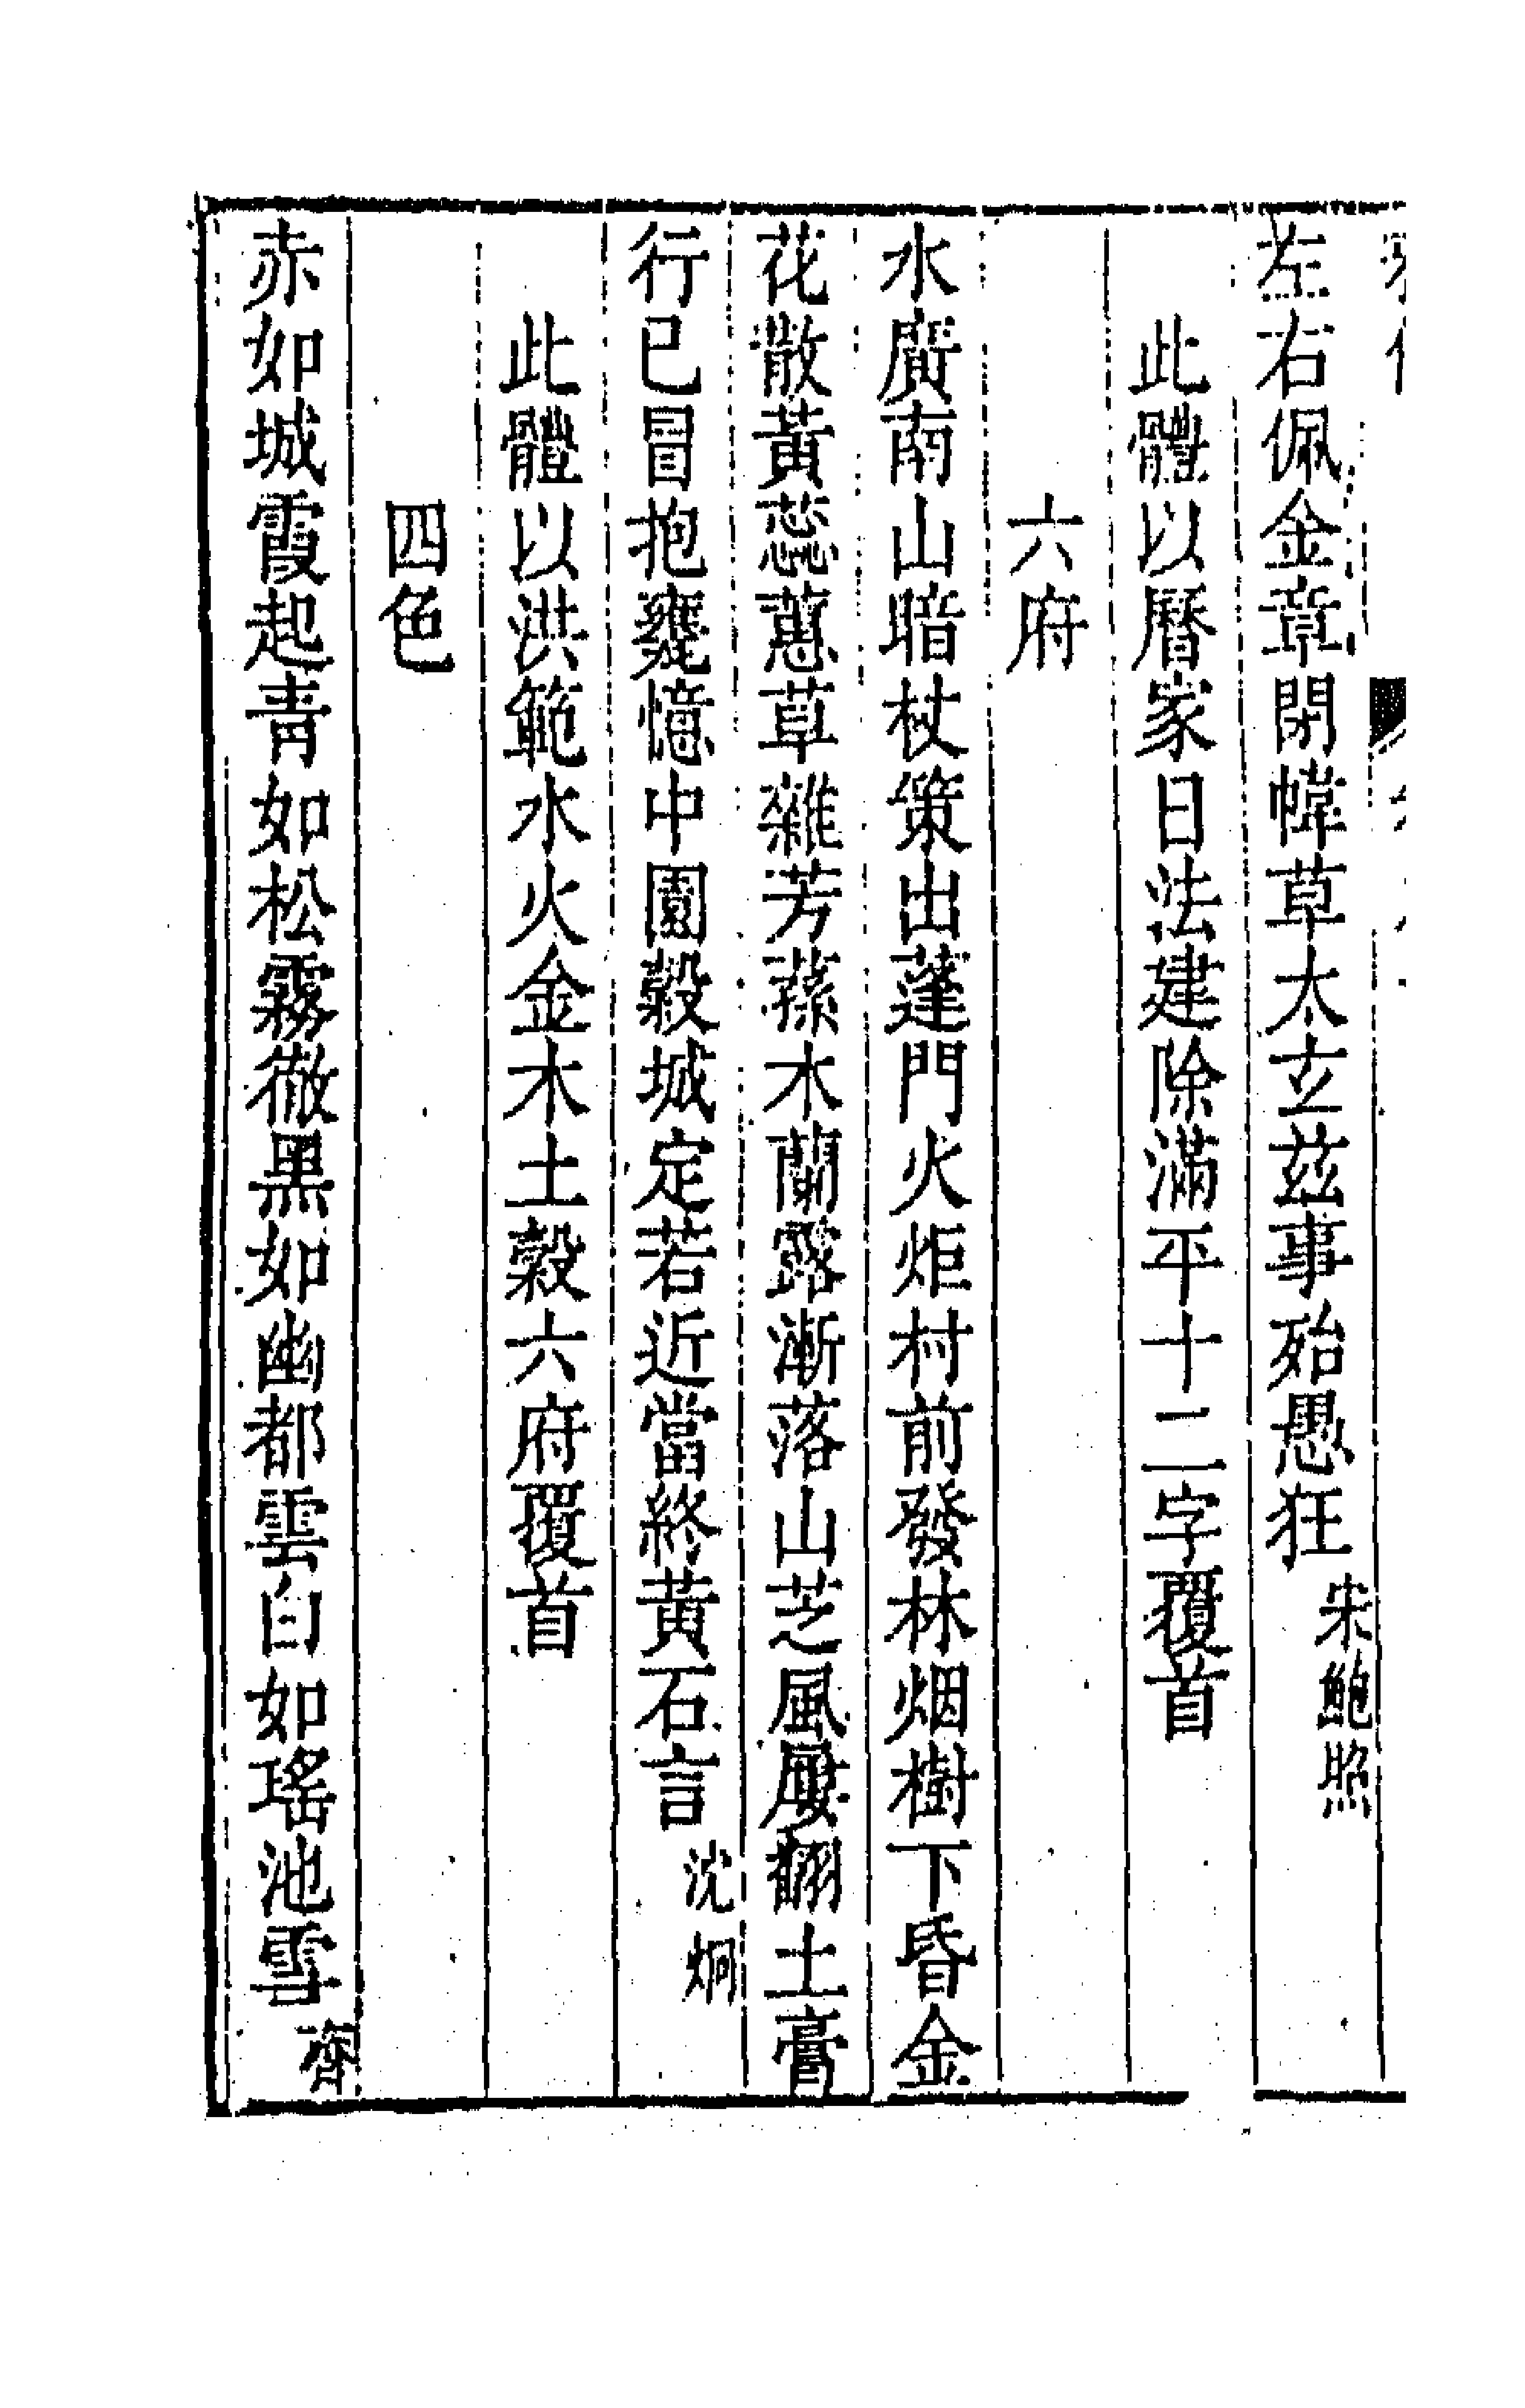 左右佩金章閉幃草太玄茲事殆愚狂宋鮑照
此體以曆家日法建除滿平十二字覆首
六府
水廣南山暗杖策出蓬門火炬村前發林烟樹下昏金
花散黃蕊蕙草雜芳蓀木蘭露漸落山芝風屢翻土膏
行已冒抱甕憶中園穀城定若近當終黃石言沈烱
此體以洪範水火金木土穀六府覆首
四色
赤如城霞起青如松霧徹黑如幽都雲白如瑤池雪齊